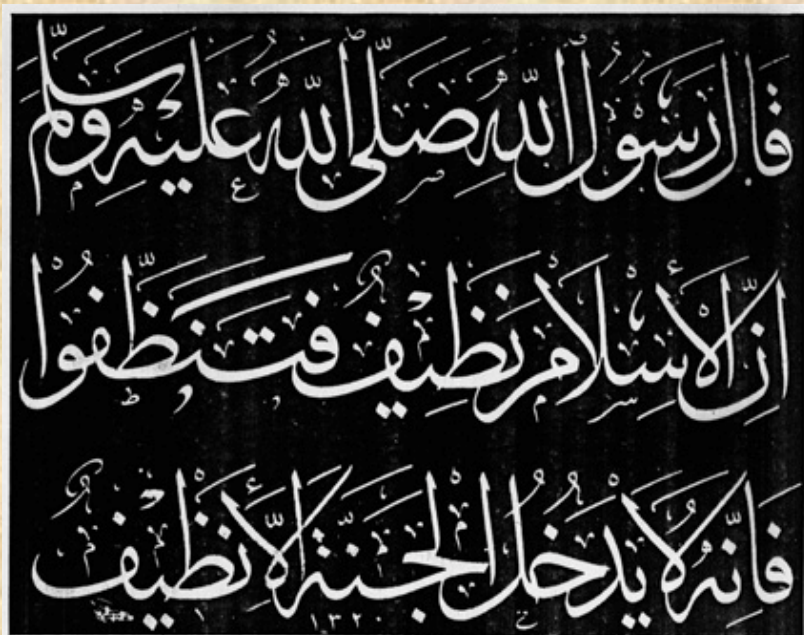 قَالَ رَسُولُ اللّٰهِ صَلَّى اللّٰهُ عَلَيْهِ وَسَلَّمَ
اِنَّ الْأِسْلَامَ نَظِيفٌ فَتَنَظَّفُوا
فَاِنَّهُ لَا يَدْخُلُ الْجَنَّةَ اِلَّا نَظِيفٌ
١٣٢٠